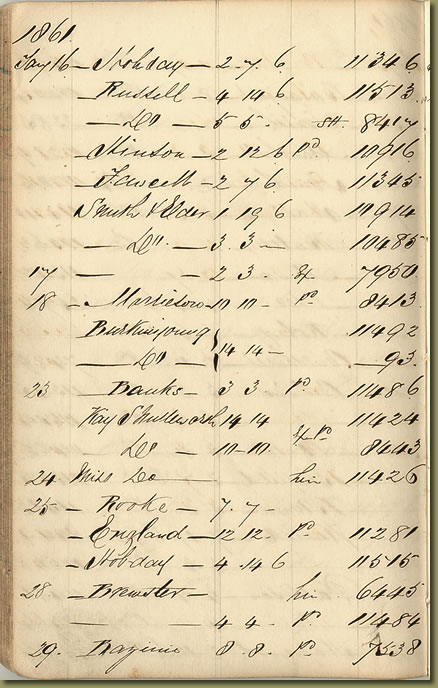 1861.
16 – Hobday – 2 . 7 . 6 11346
– Russell – 4 14 6 11513
– Do – 5 5 . 8417
– Stinson – 2 12 6 pd 10916
– Fawcett – 2 7 6 11345
Smith & Elder 1 19 6 10914
– Do . 3 . 3 – 10485
17 – – 2 3 . 7950
18 – – 10 10 – pd 8413
11492
– Do } 14 14 – – 93 .
23 – Banks – 3 3 pd 11486
Kay Shuttleworth 14 14 11424
Do – 10 – 10 . 8443
24 Miss Do – 11426
25 – Rooke – 7 . 7 –
– England – 12 12 . pd 11281
– Hobday – 4 . 14 6 11515
28 – Brewster – 6445
– 4 4 . pd 11484
29 . 8 . 8 . pd 7538